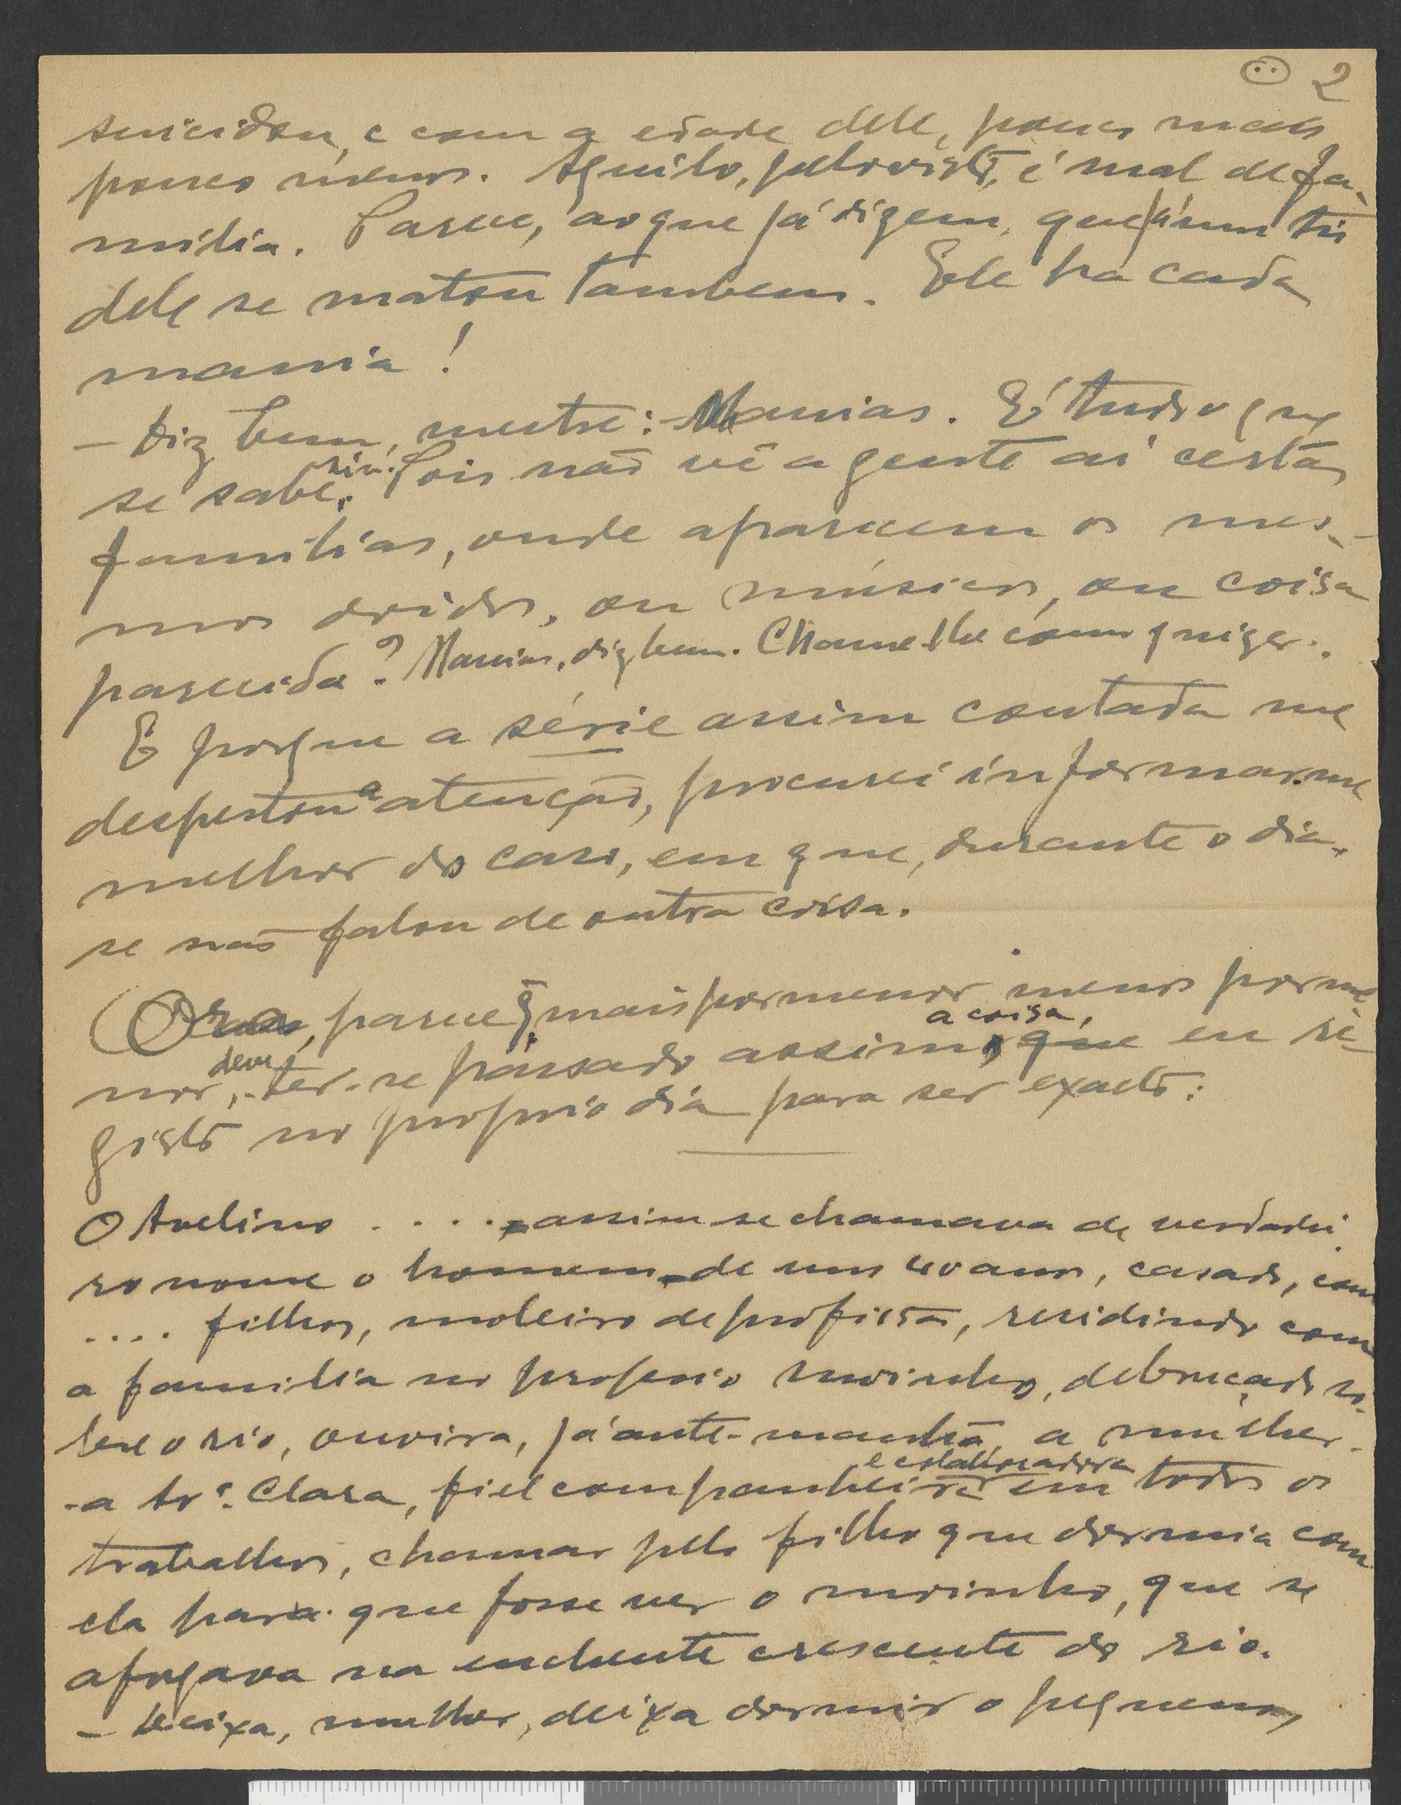 2
suicidou, e com a edade dele, pouco mais
pouco menos. Aquilo, pelo visto, é mal de fa-
milia. Parece, ao que já dizem, que já um tio
dele se matou tambem. Ele ha cada
mania!
– Diz bem, mestre: Manias. É tudo o que
se sabe, sim. Pois não vê a gente aí certas
familias, onde aparecem os mes-
mos doidos, ou músicos, ou coisa
parecida? Manias, diz bem. Chame-lhe como quizer.
E porque a série assim contada me
despertou a atenção, procurei informar-me
melhor do caso, em que, durante o dia,
se não falou de outra coisa.
Ora, parece q mais pormenor menos porme
nor, deve ter-se passado assim a coisa, que eu re-
gisto no proprio dia para ser exacto:
O Avelino .... assim se chamava de verdadei
ro nome o homem de uns 40 anos, casado, com
.... filhos, moleiro de profissão, residindo com
a familia no proprio moinho, debruçado so-
bre o rio, ouvira, já ante-manhã, a mulher-
-a Sr.ª Clara, fiel companheira e colaboradora em todos os
trabalhos, chamar pelo filho que dormia com
ela para que fosse ver o moinho, que se
afogava na enchente crescente do rio.
– Deixa, mulher, deixa dormir o pequeno,